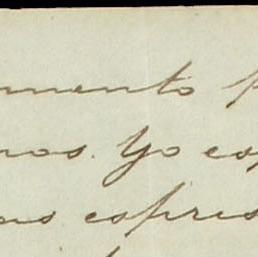 mento
nos. Yo es
as espres